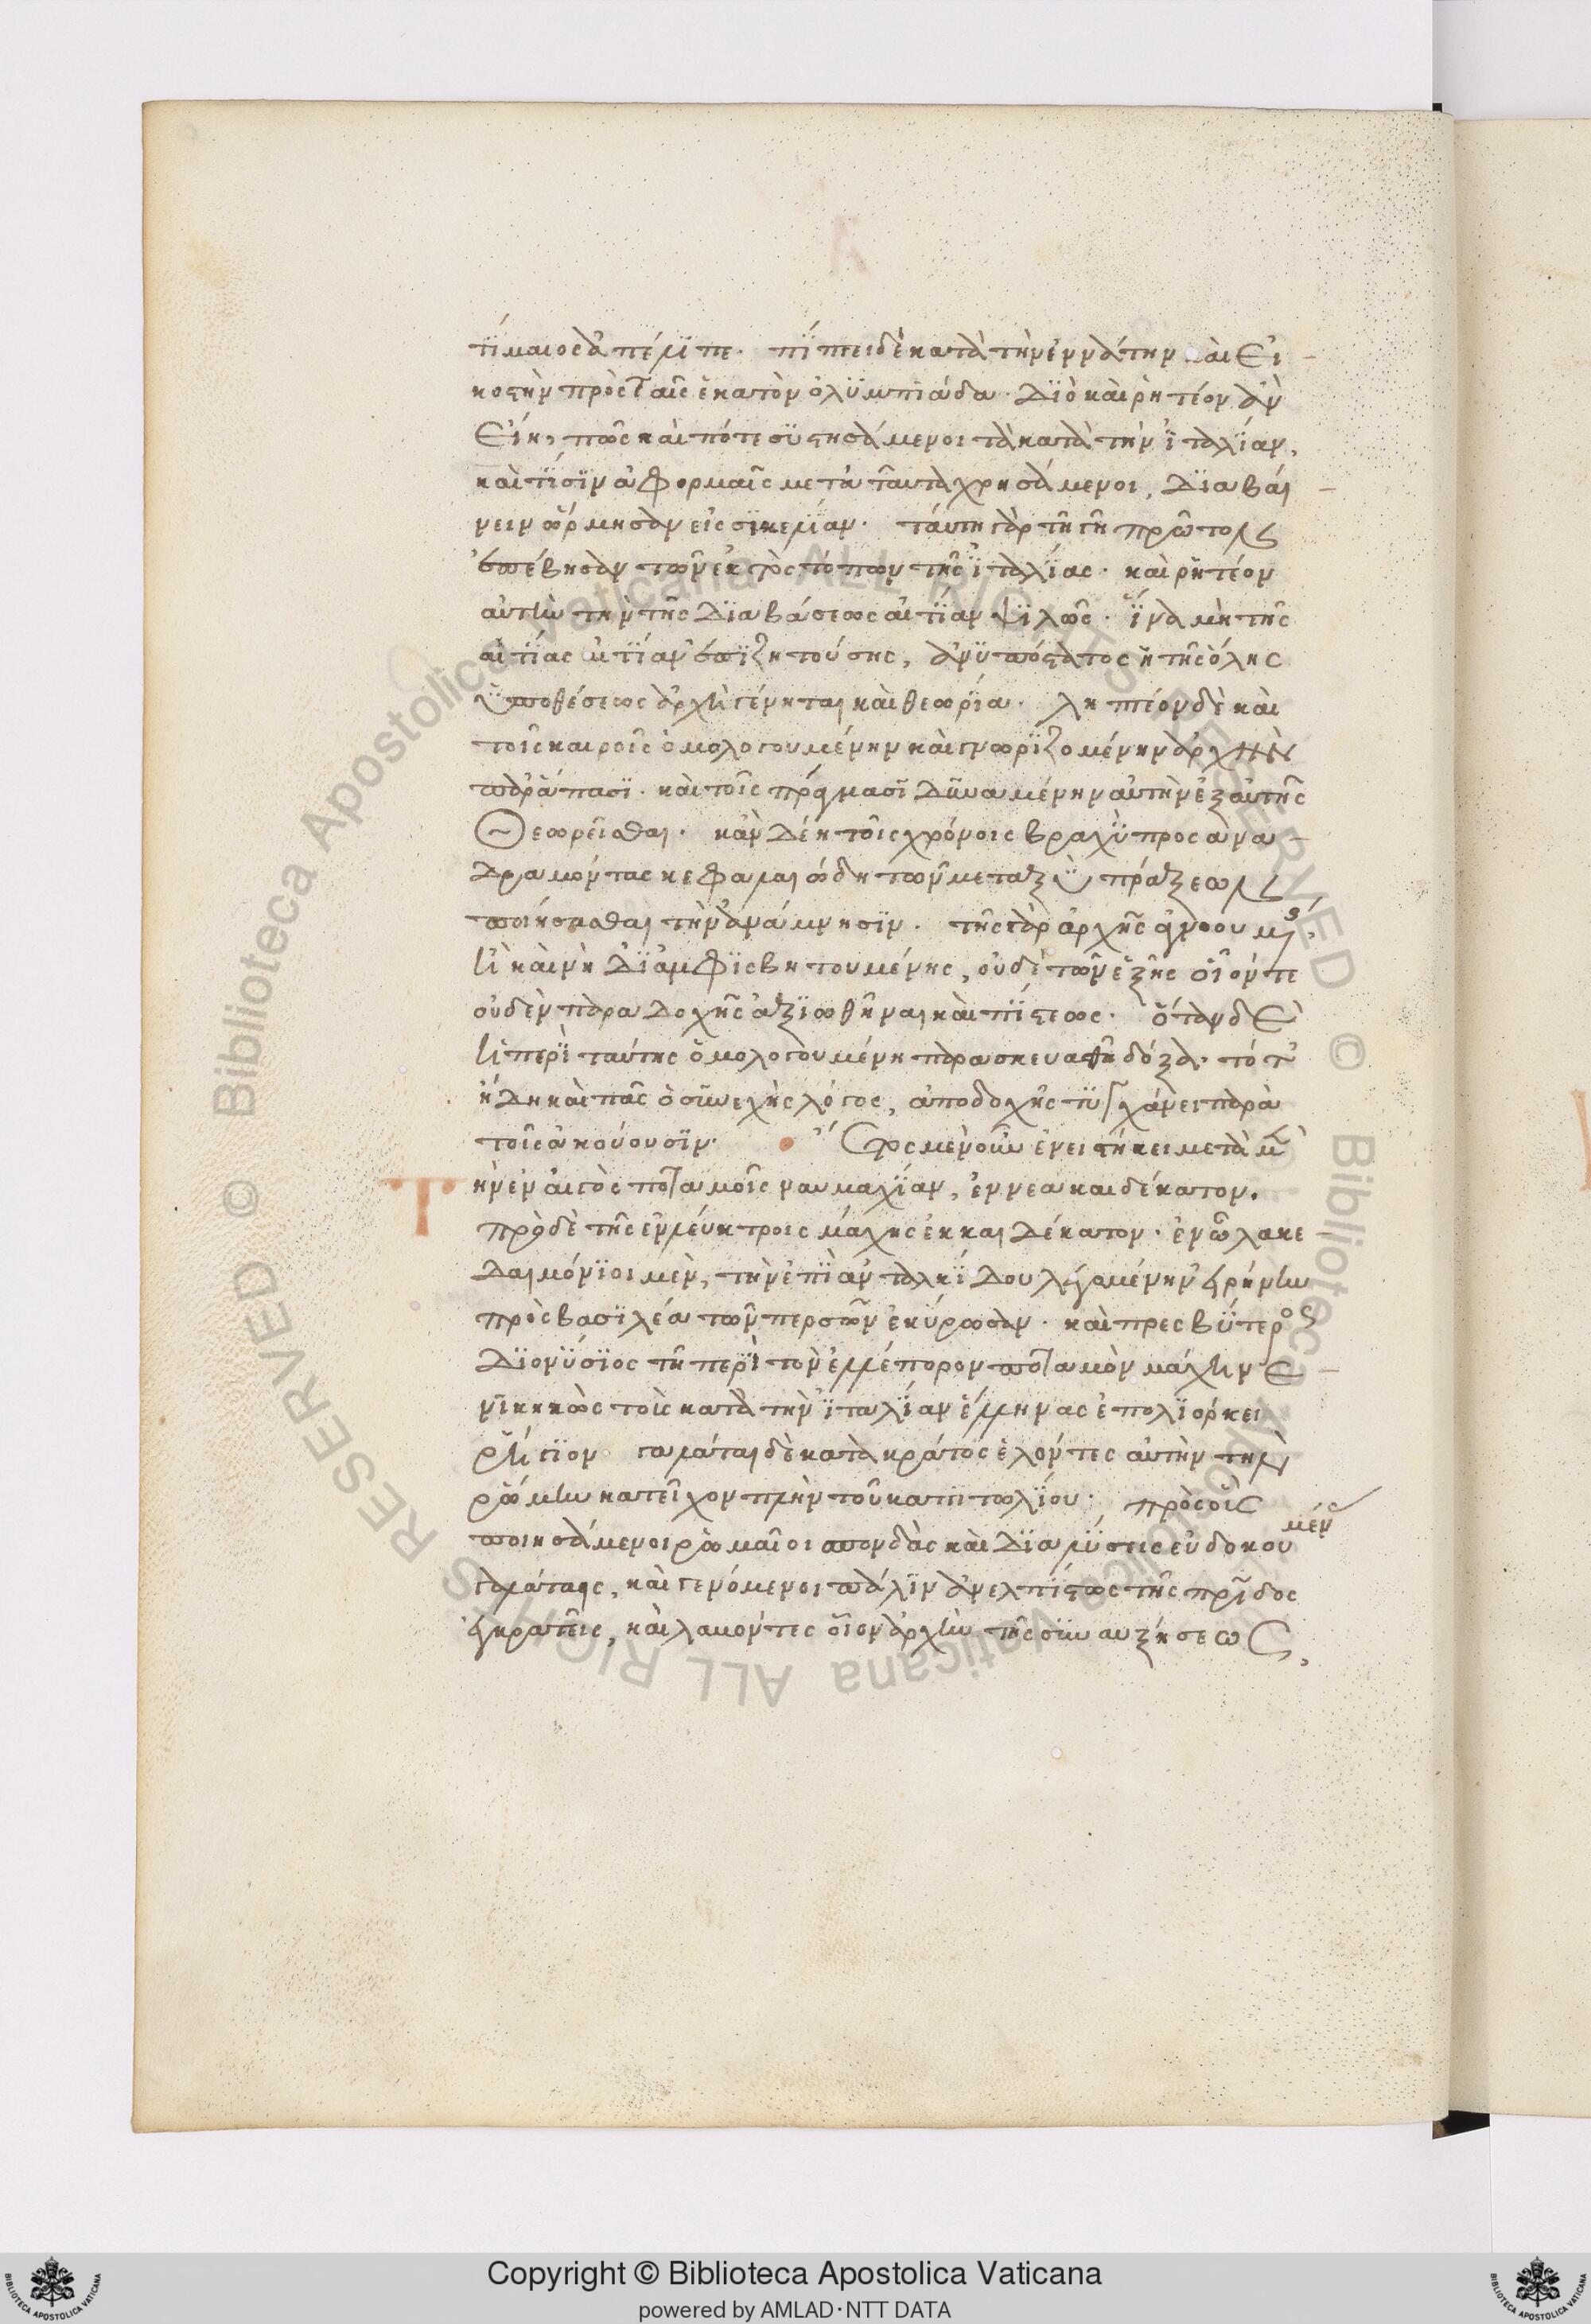 τίμαιος ἀπέλιπε. πίπτει δὲ κατὰ τὴν ἐννάτην καὶ εἰ
κοστὴν πρὸς ταῖς ἑκατὸν ὀλυμπιάδα. διὸ καὶ ῥητέον ἂν
εἴη, πῶς καὶ πότε συστησάμενοι τὰ κατὰ τὴν ἰταλίαν,
καὶ τίσιν ἀφορμαῖς μετὰ ταῦτα χρησάμενοι, διαβαί
νειν ὥρμησαν εἰς σικελίαν. ταύτῃ γὰρ τῇ γῇ πρῶτον
ἐπέβησαν τῶν ἐκτὸς τόπων τῆς ἰταλίας. καὶ ῥητέον
αὐτὴν τὴν τῆς διαβάσεως αἰτίαν ψιλῶς. ἵνα μὴ τῆς
αἰτίας αἰτίαν ἐπιζητούσης, ἀνυπόστατος ἡ τῆς ὅλης
ὑποθέσεως ἀρχὴ γένηται καὶ θεωρία. ληπτέον δὲ καὶ
τοῖς καιροῖς ὁμολογουμένην καὶ γνωριζομένην ἀρχὴν
παρ' ἅπασι. καὶ τοῖς πράγμασι δυναμένην αὐτὴν ἐξ αὐτῆς
θεωρεῖσθαι. κἂν δέῃ τοῖς χρόνοις βραχὺ προσανα
δραμόντας κεφαλαιώδη τῶν μεταξὺ πράξεων
ποιήσασθαι τὴν ἀνάμνησιν. τῆς γὰρ ἀρχῆς ἀγνοουμένης
ἢ καὶ νὴ δι' ἀμφισβητουμένης, οὐδὲ τῶν ἑξῆς οἷόν τε
οὐδὲν παραδοχῆς ἀξιωθῆναι καὶ πίστεως. ὅταν δὲ
ἡ περὶ ταύτης ὁμολογουμένη παρασκευασθῇ δόξα. τότ'
ἤδη καὶ πᾶς ὁ συνεχὴς λόγος, ἀποδοχῆς τυγχάνει παρὰ
τοῖς ἀκούουσιν. Ἔτος μὲν οὖν ἐνειστήκει μετὰ μὲν
τὴν ἐν αἰγὸς ποταμοῖς ναυμαχίαν, ἐννεακαιδέκατον.
πρὸ δὲ τῆς ἐν λεύκτροις μάχης ἑκκαιδέκατον. ἐν ᾧ λακε
δαιμόνιοι μὲν, τὴν ἐπὶ ἀνταλκίδου λεγομένην εἰρήνην
πρὸς βασιλέα τῶν περσῶν ἐκύρωσαν. καὶ πρεσβύτερος
διονύσιος τῇ περὶ τὸν ἐλλέπορον ποταμὸν μάχην ε
νικηκὼς τοὺς κατὰ τὴν ἰταλίαν ἕλληνας ἐπολιόρκει
ῥήγιον γαλάται δὲ κατὰ κράτος ἑλόντες αὐτὴν τὴν
ῥώμην κατεῖχον πλὴν τοῦ καπιτωλίου. πρὸς οὓς
ποιησάμενοι ῥωμαῖοι σπονδὰς καὶ διαλύσεις εὐδοκουμένας
γαλάταις, καὶ γενόμενοι πάλιν ἀνελπίστως τῆς πατρίδος
ἐγκρατεῖς, καὶ λαβόντες οἷον ἀρχὴν τῆς συναυξήσεως,